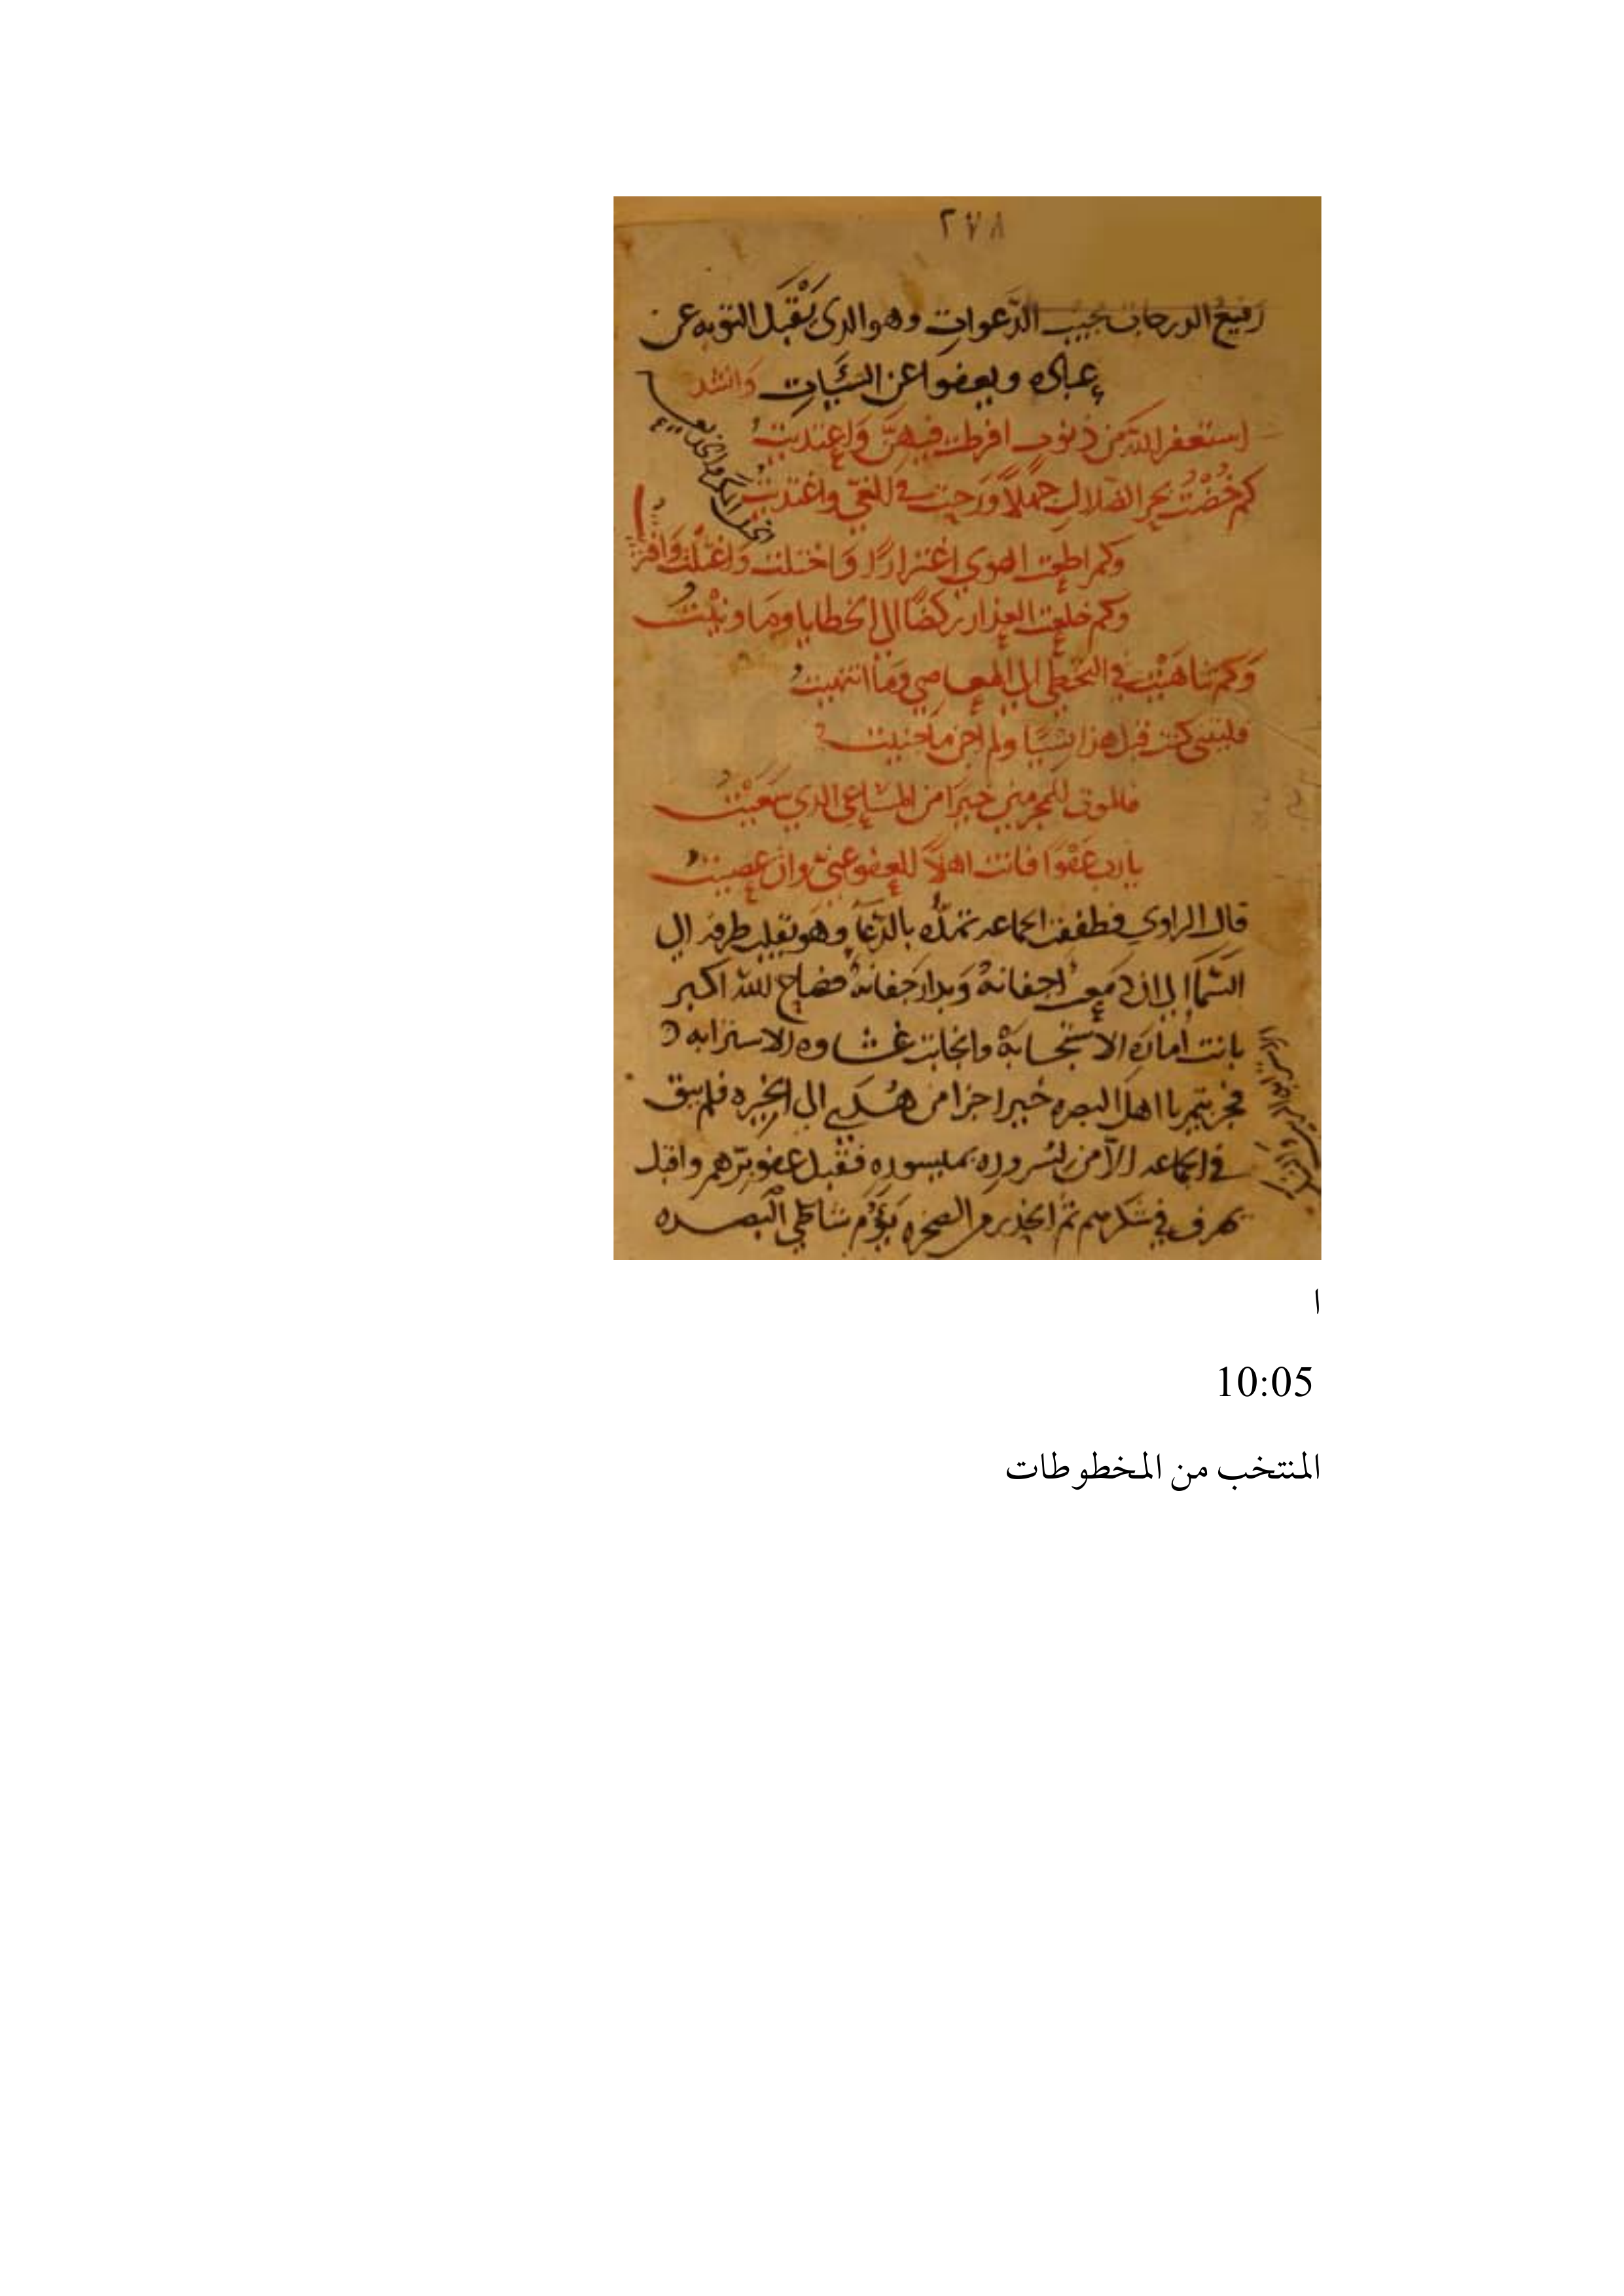 ٢٧٨
رفيع الدرجات مجيب الدَّعوات وهو الذى يَقْبَل التوبه عن
عباده ويعفوا عن السَّيَّاتِ وانشد
استغفر الله من ذنوب افرطت فيهنَّ وَاعتديتُ
كم خُضْتُ بحر الضلال جهلاً وَرحت في الغيّ واغتديتُ
وكم اطعت الهوي اغترارًا وَاختلت وَاغتلت وَافتر
وكم خلعت العذار ركضًا الى الخطايا وما ونيْتُ
وَكم تناهَيْت في التخطّي الى المعاصي وَما انتهيتُ
فليتني كنت قبل هذا نسيًا ولم اجن ما جنيت
فالموت للمجرمين خيرًا من المساعي الذي سَعَيْتُ
يارب عَفْوًا فانت اهلاً للعفو عني وان عصيتُ
قال الراوي فطفقت الجماعه تمدُّه بالدّعا وهو يقلب طرفه الي
السَّما الى ان دمعت اجفانهُ وَبدا رَجفانهُ فصاح الله اكبر
بانت اماره الاستجابَهْ وانجابت غشاوه الاسترابه
فجزيتم يا اهل البصره خير اجزا من هُدَي الى الخيره فلم يبق
في الجماعه الاّ من لسروره بميسوره فقبل عفو برّهم واقبل
يهرف في شكرهم ثم انحدر من الصخره يَؤُم شاطي البَصره
ا
10:05
المنتخب من المخطوطات